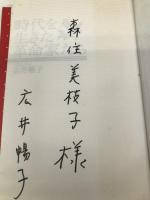 森住美枝子様
広井暢子